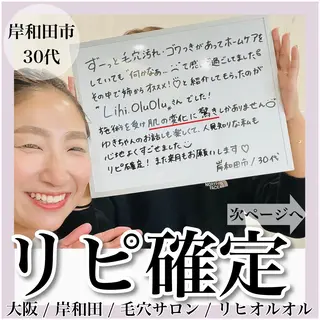 岸和田市
30代
ずーっと毛穴汚れ・ゴワつきがあってホームケアを
していても"何かなぁ〜"って感じで過ごしてました
その中で姉からオススメ!♡と紹介してもらったのが
"Lihi.OluOlu"さんでした!
施術を受け肌の変化に驚きしかありません
ゆきちゃんのお話しも楽しくて、人見知りな私も
心地よくすごせました
リピ確定!また来月もお願いします♡
岸和田市/30代
次ページへ
リピ確定
大阪/岸和田/毛穴サロン/リヒオルオル